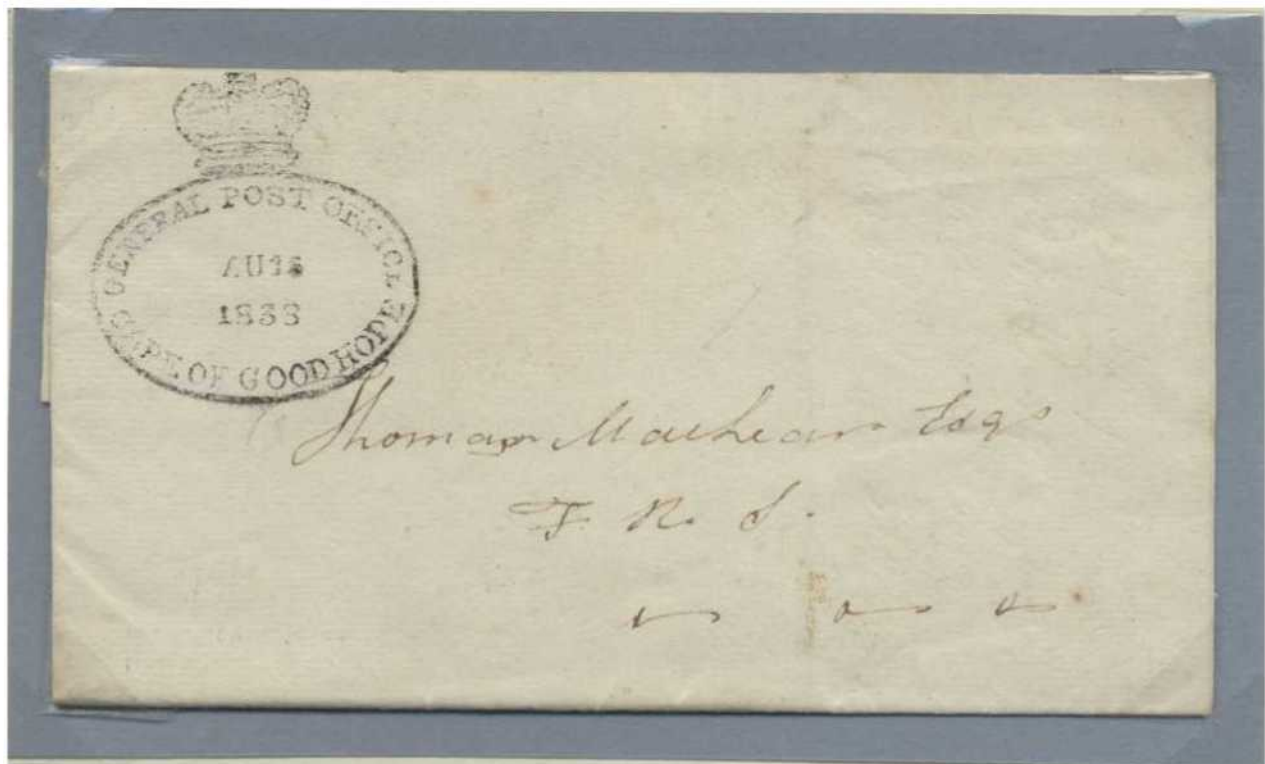 GENERAL POST OFFICE
AU 18
1838
CAPE OF GOOD HOPE
Thomas Maclear Esqr
F. R. S.